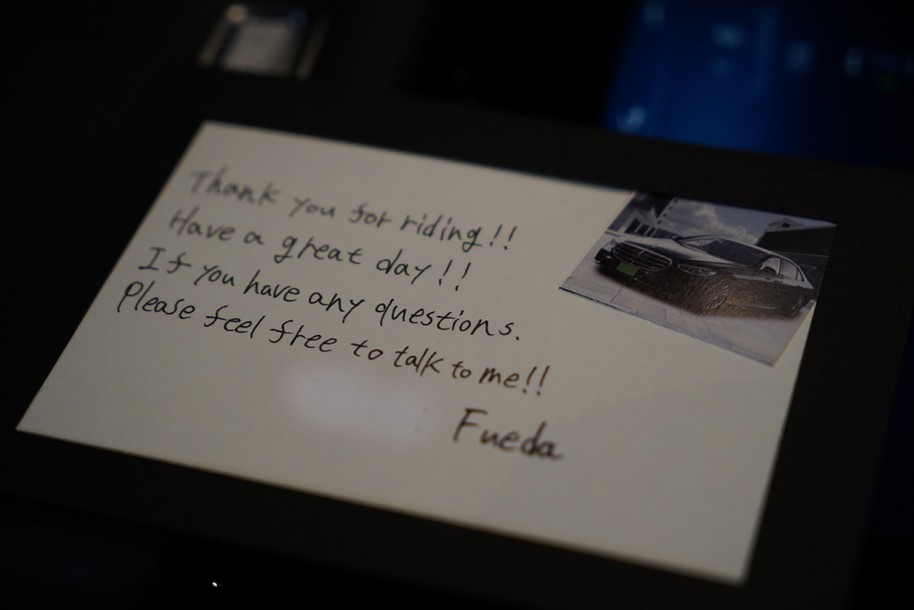 Thank you for riding!!
Have a great day!!
If you have any questions.
Please feel free to talk to me!!
Fueda